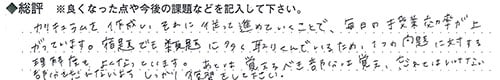 ◆総評 ※良くなった点や今後の課題などを記入して下さい。
カリキュラムを作成し、それに沿って進めていくことで、毎日の授業効率が上
がっています。宿題でも数題に多く取りくんでいるため、1つの問題に対する
理解度も上がっています。あとは覚えるべき部分は覚え、忘れてはいけない
部分を忘れないよう しっかり復習をして下さい。